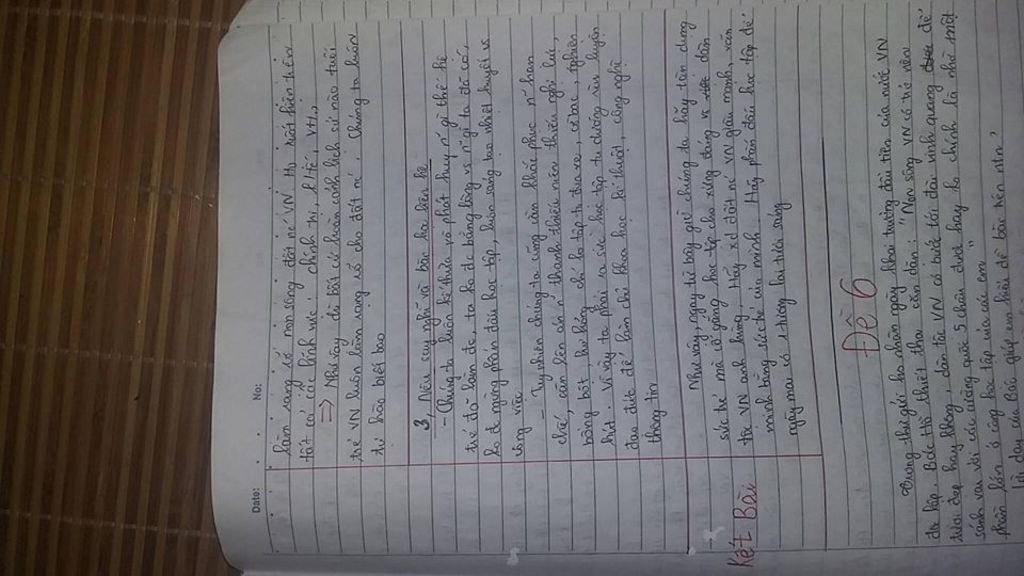 Date: No:
làm sáng tỏ non sông đất nc VN
tất cả các lĩnh vực: chính trị, k.tế, VH,
=> Như vậy dù bất cứ hoàn cảnh lịch sử nào tuổi
trẻ VN luôn làm rạng rỡ cho đất nc. Chúng ta luôn
tự hào biết bao
3, Nêu suy nghĩ và bài học liên hệ
- Chúng ta luôn kế thừa và phát huy n~ gì thế hệ
trc đã làm đc, ta ko đc bằng lòng vs n~ gì ta đã có,
ko ngừng phấn đấu học tập, luôn sáng tạo nhiệt huyết vs
công việc
- Tuy nhiên chúng ta cũng cần khắc phục n~ hạn
chế, cần lên án n~ thanh thiếu niên thiếu nghị lực,
hút. Vì vậy ta phải ra sức học tập tu dưỡng rèn luyện
đạo đức để làm chủ khoa học kĩ thuật, công nghệ
thông tin
Kết Bài
Như vậy, ngay từ bây giờ chúng ta hãy tận dụng
sức trẻ mà cố gắng học tập cho xứng đáng vs dân
tộc VN anh hùng. Hãy xd đất nc VN giàu mạnh, văn
minh bằng sức trẻ của mình. Hãy phấn đấu học tập để
ngày mai có 1 tương lai tươi sáng
Đề 6
"Trong thư gửi học sinh nhân ngày khai trường đầu tiên của nước VN
độc lập, Bác Hồ thiết tha căn dặn: "Non sông VN có trở nên
tươi đẹp hay không, dân tộc VN có bước tới đài vinh quang để
sánh vai với các cường quốc 5 châu được hay ko chính là nhờ một
phần lớn ở công học tập của các em"
Lời dạy của Bác giúp em hiểu